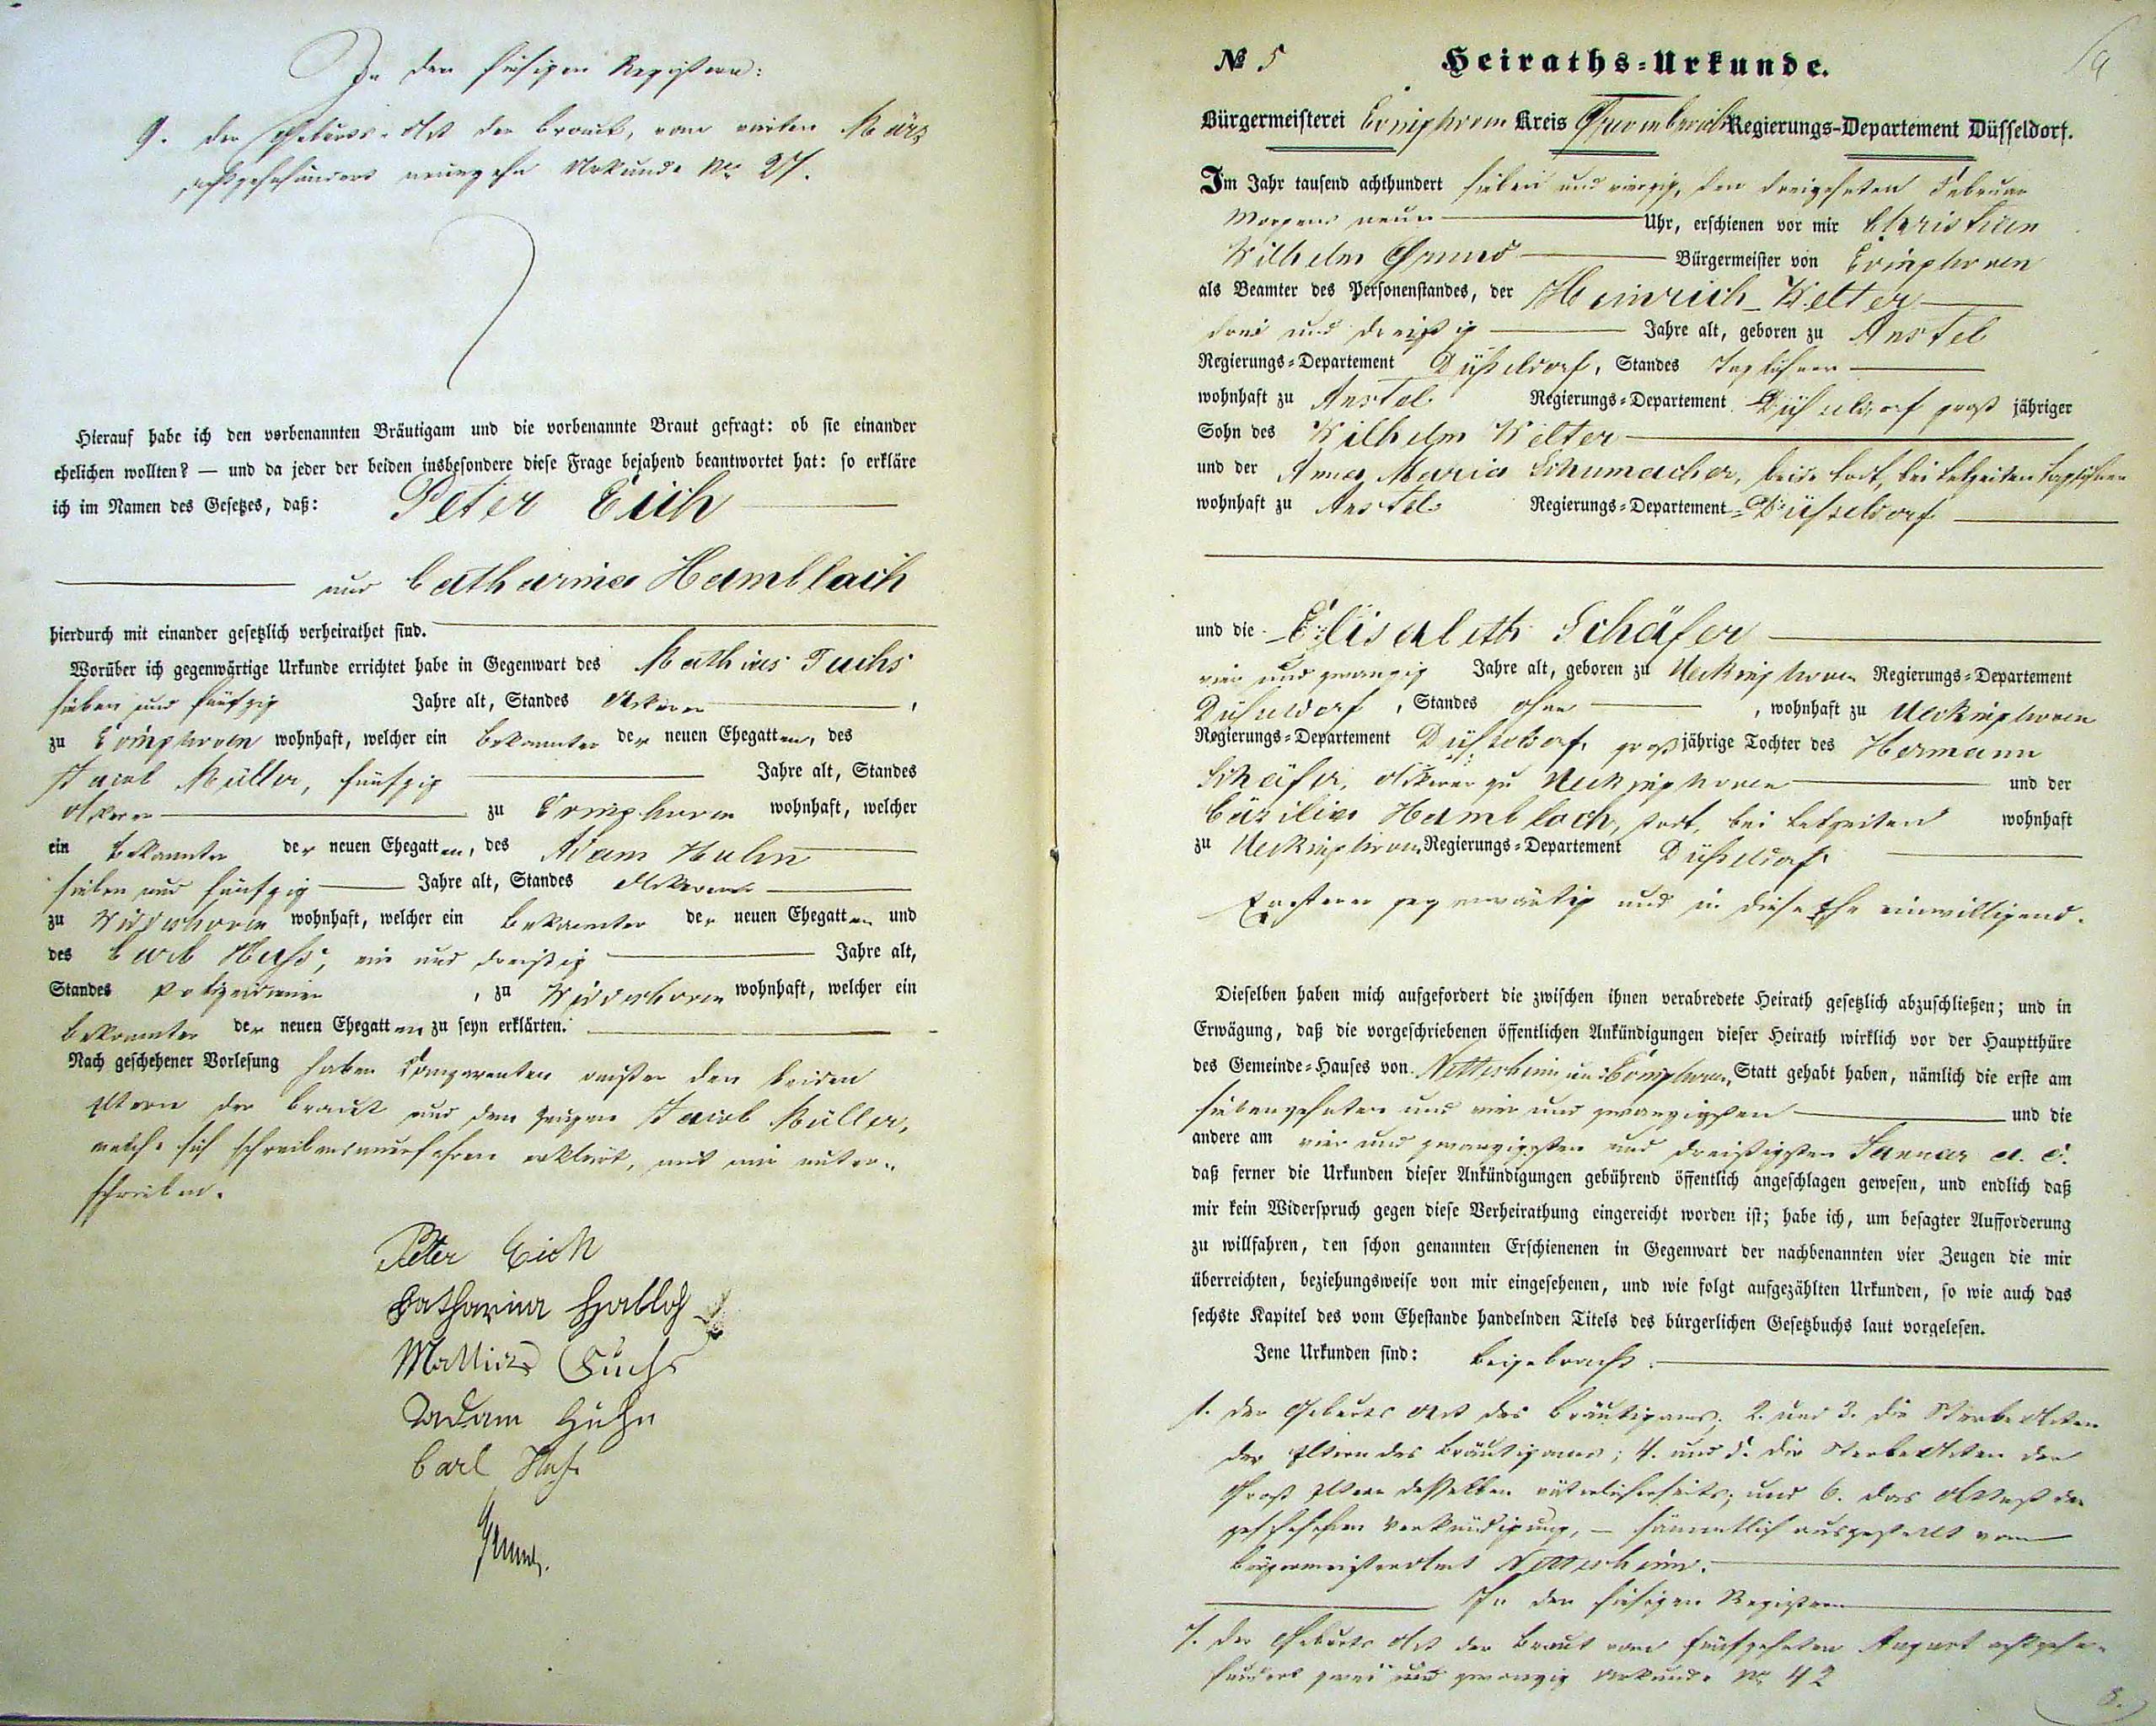 In den hiesigen Registern:
9. der Geburts-Act der Braut, vom vierten März
achtzehnhundert neunzehn Urkunde No 27.
Hierauf habe ich den vorbenannten Bräutigam und die vorbenannte Braut gefragt: ob sie einander
ehelichen wollten? — und da jeder der beiden insbesondere diese Frage bejahend beantwortet hat: so erkläre
ich im Namen des Gesetzes, daß: Peter Eich
und Catharina Hambloch
hierdurch mit einander gesetzlich verheirathet sind.
Worüber ich gegenwärtige Urkunde errichtet habe in Gegenwart des Mathias Fuchs
sieben und fünfzig Jahre alt, Standes Ackerer,
zu Evinghoven wohnhaft, welcher ein Bekannter der neuen Ehegatten, des
Jacob Müller, fünfzig Jahre alt, Standes
Ackerer zu Evinghoven wohnhaft, welcher
ein Bekannter der neuen Ehegatten, des Adam Huhn
sieben und fünfzig Jahre alt, Standes Ackerer
zu Widdeshoven wohnhaft, welcher ein Bekannter der neuen Ehegatten und
des Carl , ein und dreißig Jahre alt,
Standes Polizeidiener, zu Widdeshoven wohnhaft, welcher ein
Bekannter der neuen Ehegatten zu seyn erklärten.
Nach geschehener Vorlesung haben Comparenten außer den beiden
Eltern der Braut und dem Zeugen Jacob Müller,
welche sich schreibensunerfahren erklärt, mit mir unter-
schrieben.
Peter Eich
Catharina
Mathias Fuchs
Adam Huhn
Carl
№ 5 Heiraths-Urkunde.
Bürgermeisterei Evinghoven Kreis Grevenbroich Regierungs-Departement Düsseldorf.
Im Jahr tausend achthundert sieben und vierzig, den dreizehnten Februar
Morgens neun Uhr, erschienen vor mir Christian
Wilhelm Bürgermeister von Evinghoven
als Beamter des Personenstandes, der Heinrich Welter
drei und dreißig Jahre alt, geboren zu Anstel
Regierungs-Departement Düsseldorf, Standes Taglöhner
wohnhaft zu Anstel Regierungs-Departement Düsseldorf großjähriger
Sohn des Wilhelm Welter
und der Anna Maria Schumacher, beide todt, bei Lebzeiten Taglöhner
wohnhaft zu Anstel Regierungs-Departement Düsseldorf
und die Elisabeth Schäfer
vier und zwanzig Jahre alt, geboren zu Ueckinghoven Regierungs-Departement
Düsseldorf, Standes ohne, wohnhaft zu Ueckinghoven
Regierungs-Departement Düsseldorf, großjährige Tochter des Hermann
Schäfer, Ackerer zu Ueckinghoven und der
Cäcilia Hambloch, todt, bei Lebzeiten wohnhaft
zu Ueckinghoven Regierungs-Departement Düsseldorf
Ersterer gegenwärtig und in diese Ehe einwilligend.
Dieselben haben mich aufgefordert die zwischen ihnen verabredete Heirath gesetzlich abzuschließen; und in
Erwägung, daß die vorgeschriebenen öffentlichen Ankündigungen dieser Heirath wirklich vor der Hauptthüre
des Gemeinde-Hauses von Nettesheim und Evinghoven, Statt gehabt haben, nämlich die erste am
siebenzehnten und vier und zwanzigsten und die
andere am vier und zwanzigsten und dreißigsten Januar a. c.
daß ferner die Urkunden dieser Ankündigungen gebührend öffentlich angeschlagen gewesen, und endlich daß
mir kein Widerspruch gegen diese Verheirathung eingereicht worden ist; habe ich, um besagter Aufforderung
zu willfahren, den schon genannten Erschienenen in Gegenwart der nachbenannten vier Zeugen die mir
überreichten, beziehungsweise von mir eingesehenen, und wie folgt aufgezählten Urkunden, so wie auch das
sechste Kapitel des vom Ehestande handelnden Titels des bürgerlichen Gesetzbuchs laut vorgelesen.
Jene Urkunden sind: beigebracht:
1. der Geburts Act des Bräutigams; 2. und 3. die Sterbe Acten
der Eltern des Bräutigams; 4. und 5. die Sterbe Acten der
Groß Eltern desselben väterlicherseits; und 6. das Attest der
geschehenen Verkündigung, — sämmtlich ausgestellt vom
Bürgermeisteramt Nettesheim.
In den hiesigen Registern
7. der Geburts Act der Braut vom fünfzehnten August achtzehn-
hundert zwei und zwanzig Urkunde No 42
8.